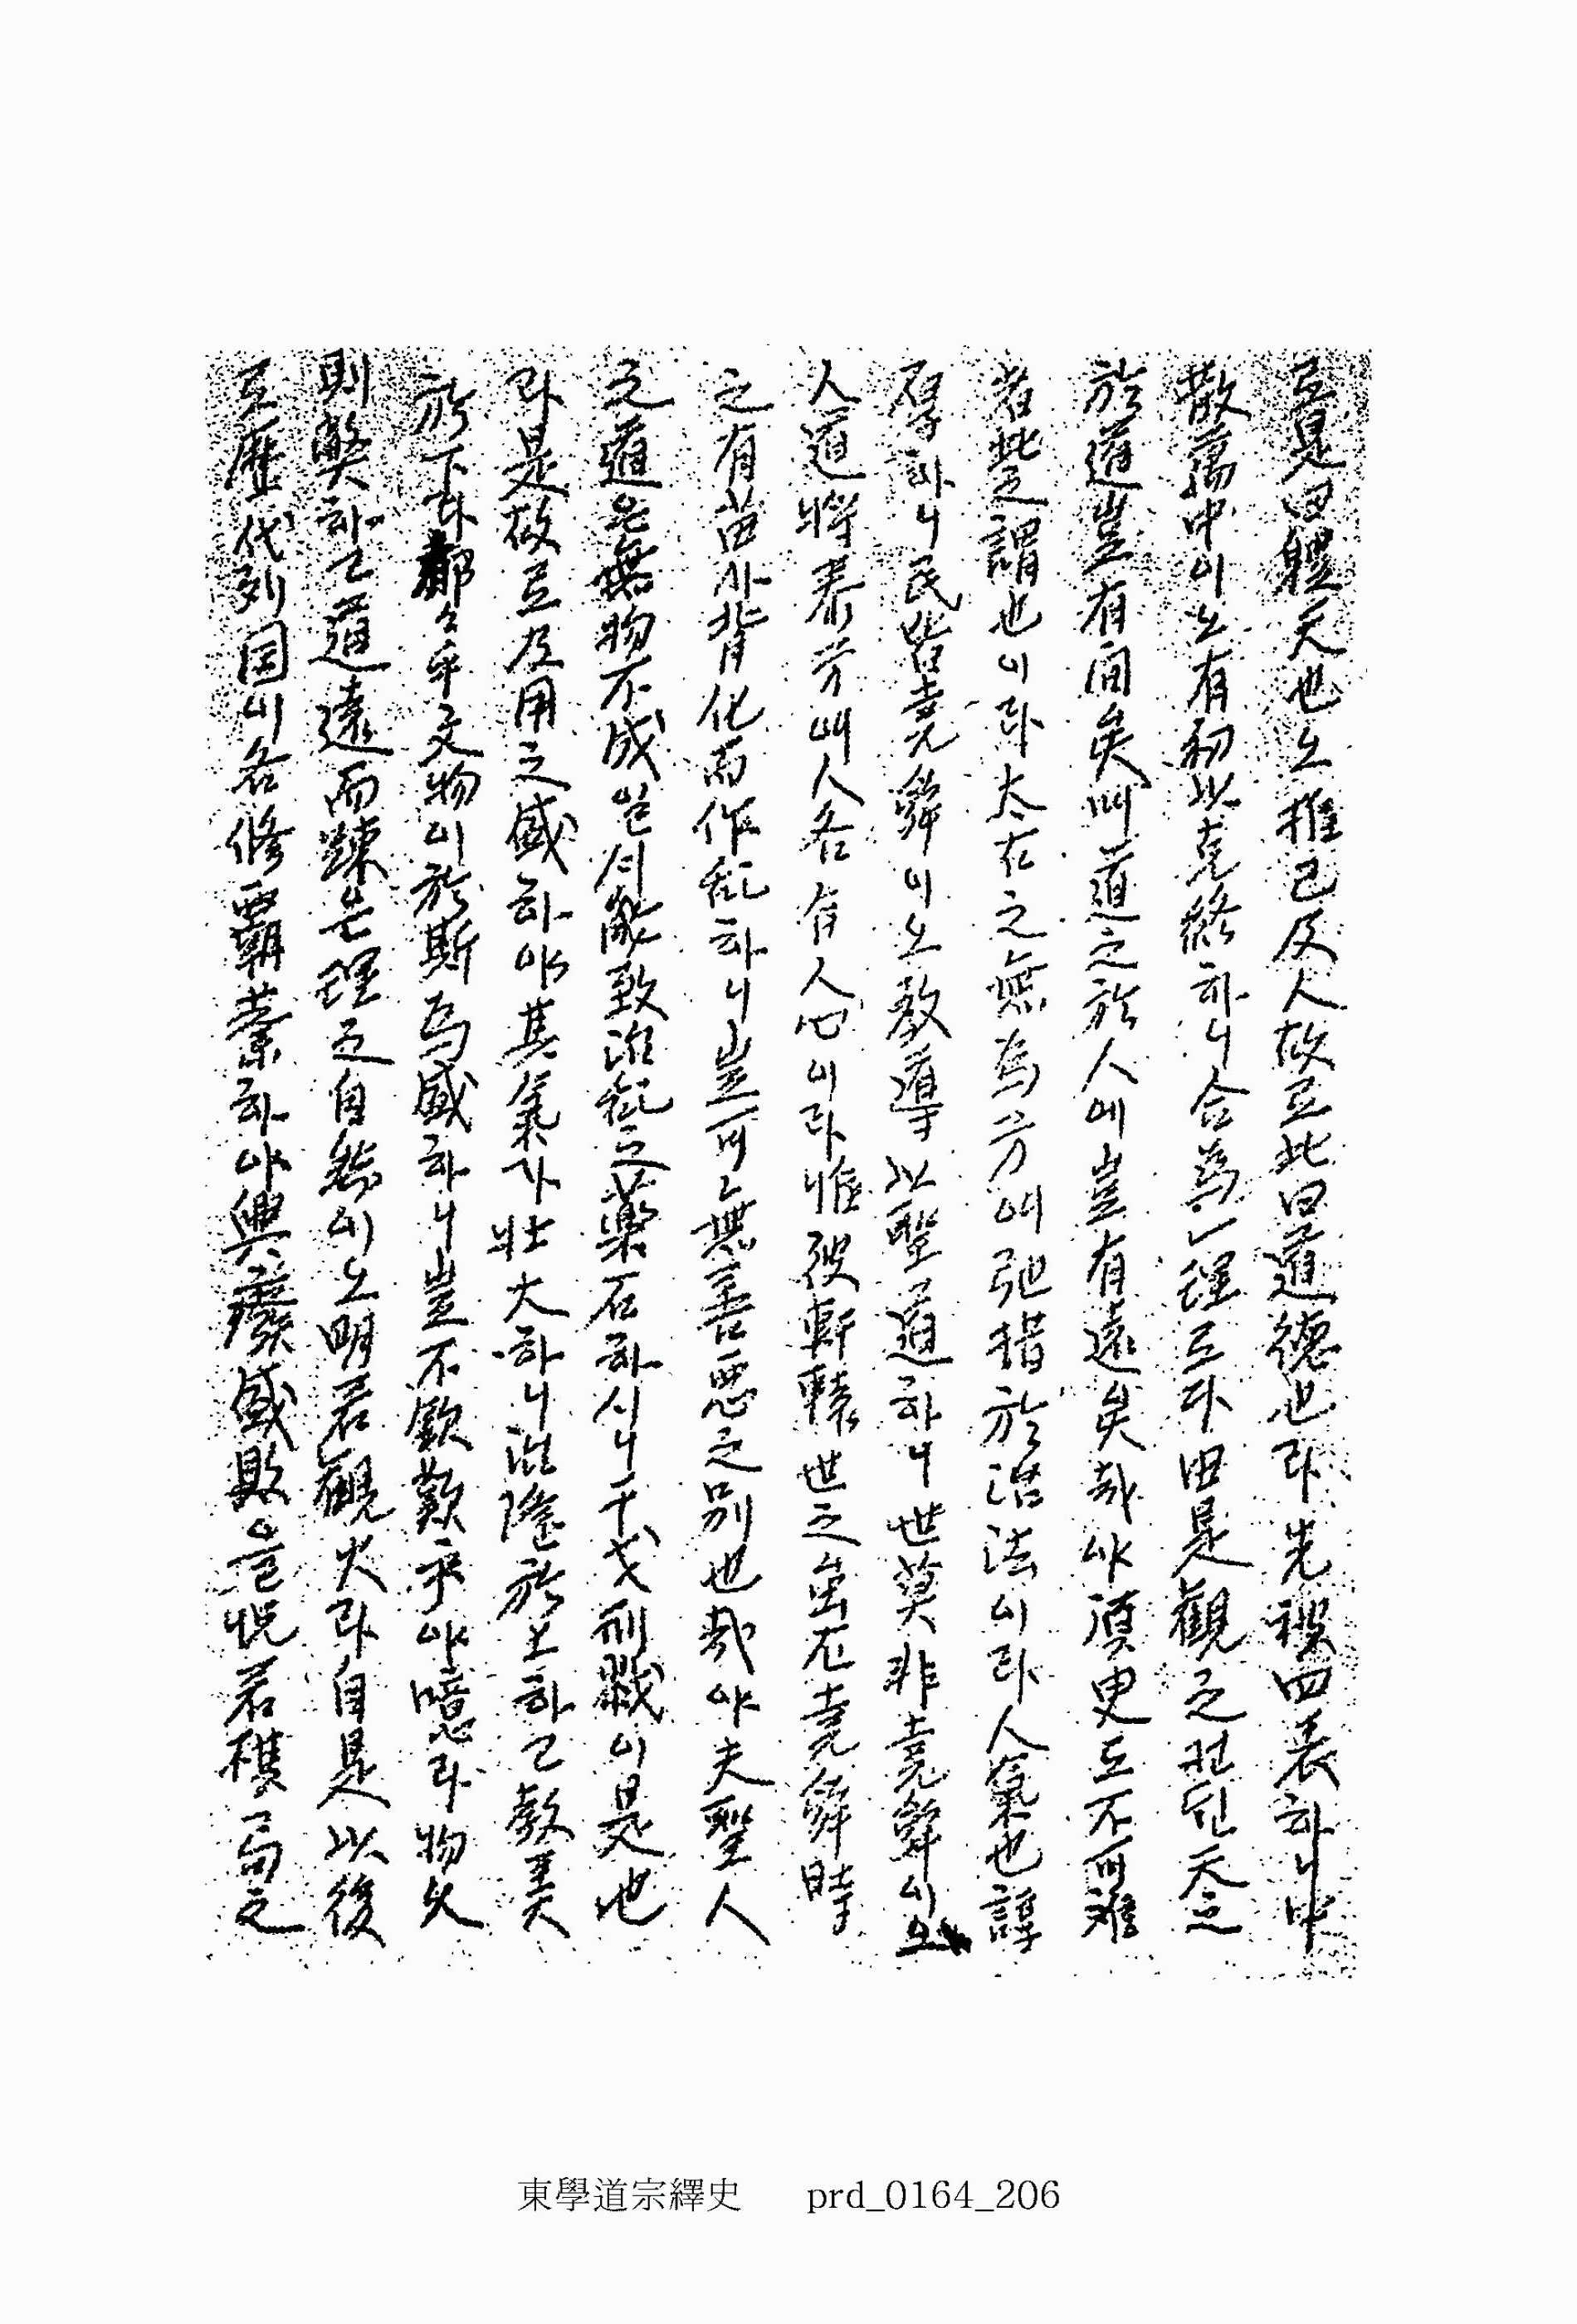 로 是曰體天也오 推己及人故로 此曰道德也라 先被四表하니 中
散萬中이오 有初以克終하니 合爲一理로다 由是觀之컨딘 天之
於道豈有間矣며 道之於人에 豈有遠矣哉아 須臾도 不可離
者 此之謂也이라 太古之無爲兮여 弛措於治法이라 人氣也淳
厚하니 民皆堯舜이오 敎導以聖道하니 世莫非堯舜이오
人道將泰兮여 人各有人心이라 惟彼軒轅世之蚩尤 堯舜時
之有苗가 背化而作乱하니 豈可無善惡之別也哉아 夫聖人
之道은 無物不成일시 能致治乱之藥石하시니 干戈刑戮이 是也
라 是故로 及用之盛하야 其氣가 壯大하니 治隆於上하고 敎美
於下라 郁々乎文物이 於斯爲盛하니 豈不欽歎乎아 噫라 物久
則弊하고 道遠而踈는 理之自然이오 明若觀火라 自是以後
로 歷代列国이 各修覇業하야 興廢盛敗을 怳若棋局之